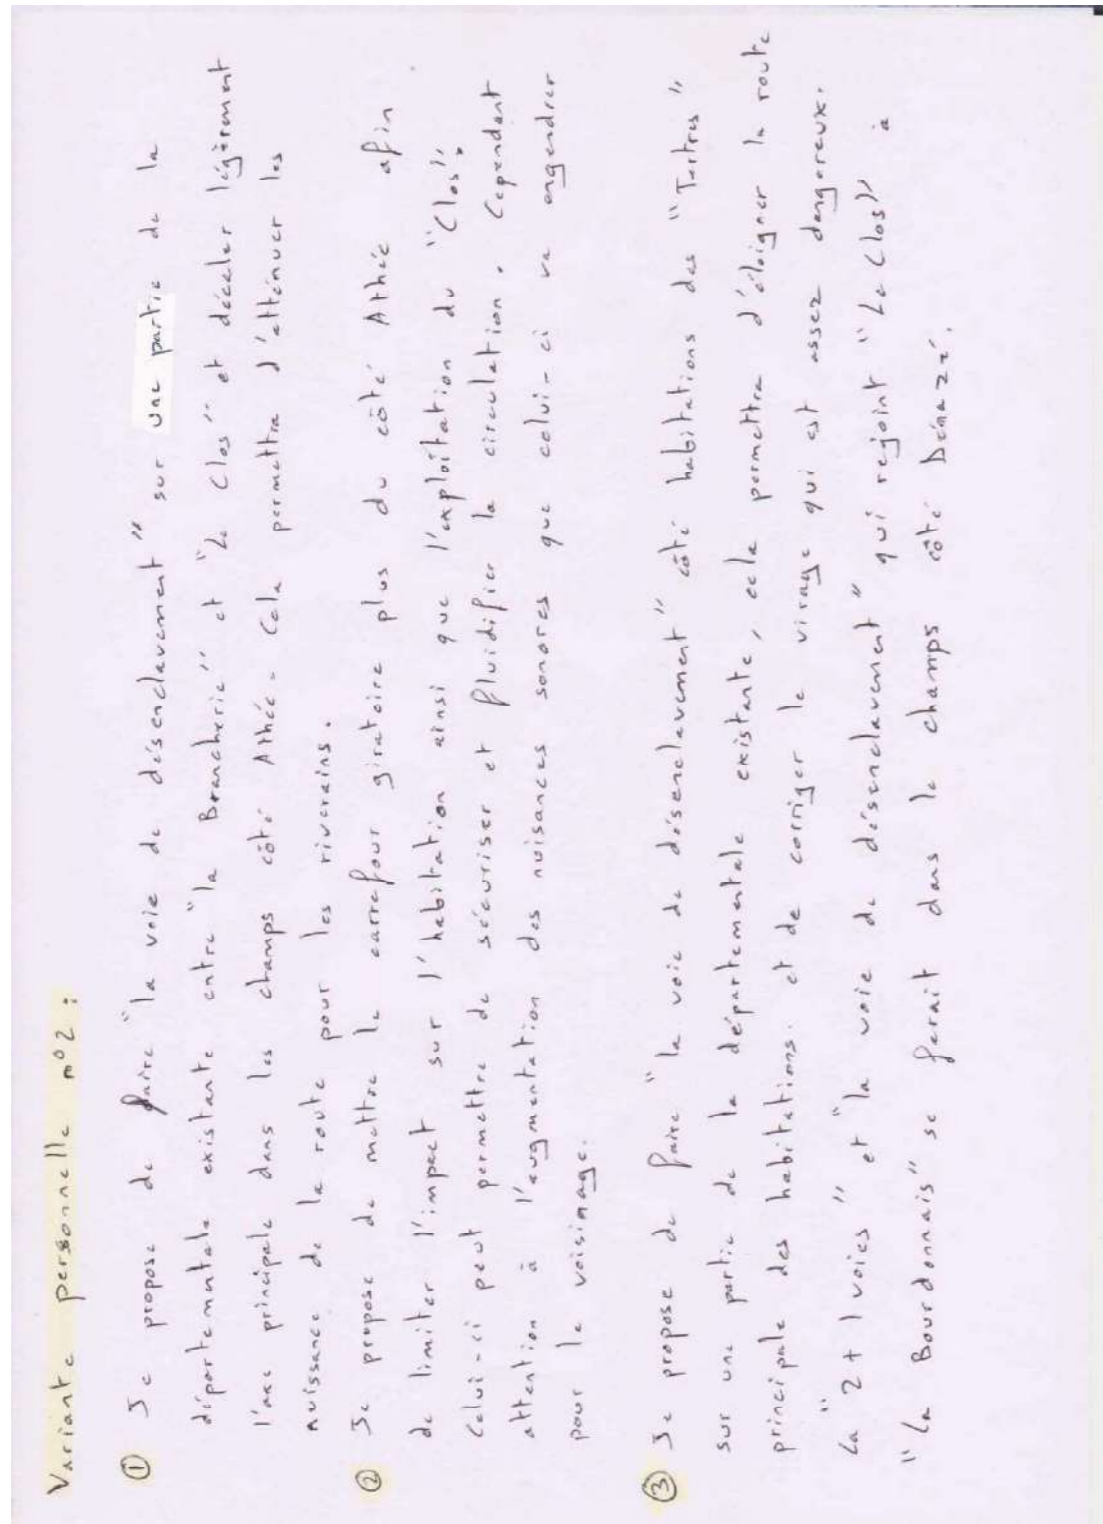 Variante personnelle n°2 :
① Je propose de faire "la voie de désenclavement" sur une partie de la
départementale existante entre "la Brancherie" et "Le Clos" et décaler légèrement
l'axe principale dans les champs côté Athée. Cela permettra d'atténuer les
nuissance de la route pour les riverains.
② Je propose de mettre le carrefour giratoire plus du côté Athée afin
de limiter l'impact sur l'habitation ainsi que l'exploitation du "Clos".
Celui-ci peut permettre de sécuriser et fluidifier la circulation. Cependant
attention à l'augmentation des nuisances sonores que celui-ci va engendrer
pour le voisinage.
③ Je propose de faire "la voie de désenclavement" côté habitations des "Tertres"
sur une partie de la départementale existante, cela permettra d'éloigner la route
principale des habitations. et de corriger le virage qui est assez dangereux.
La "2+1 voies" et "la voie de désenclavement" qui rejoint "Le Clos" à
"La Bourdonnais" se ferait dans le champs côté Dénazé.